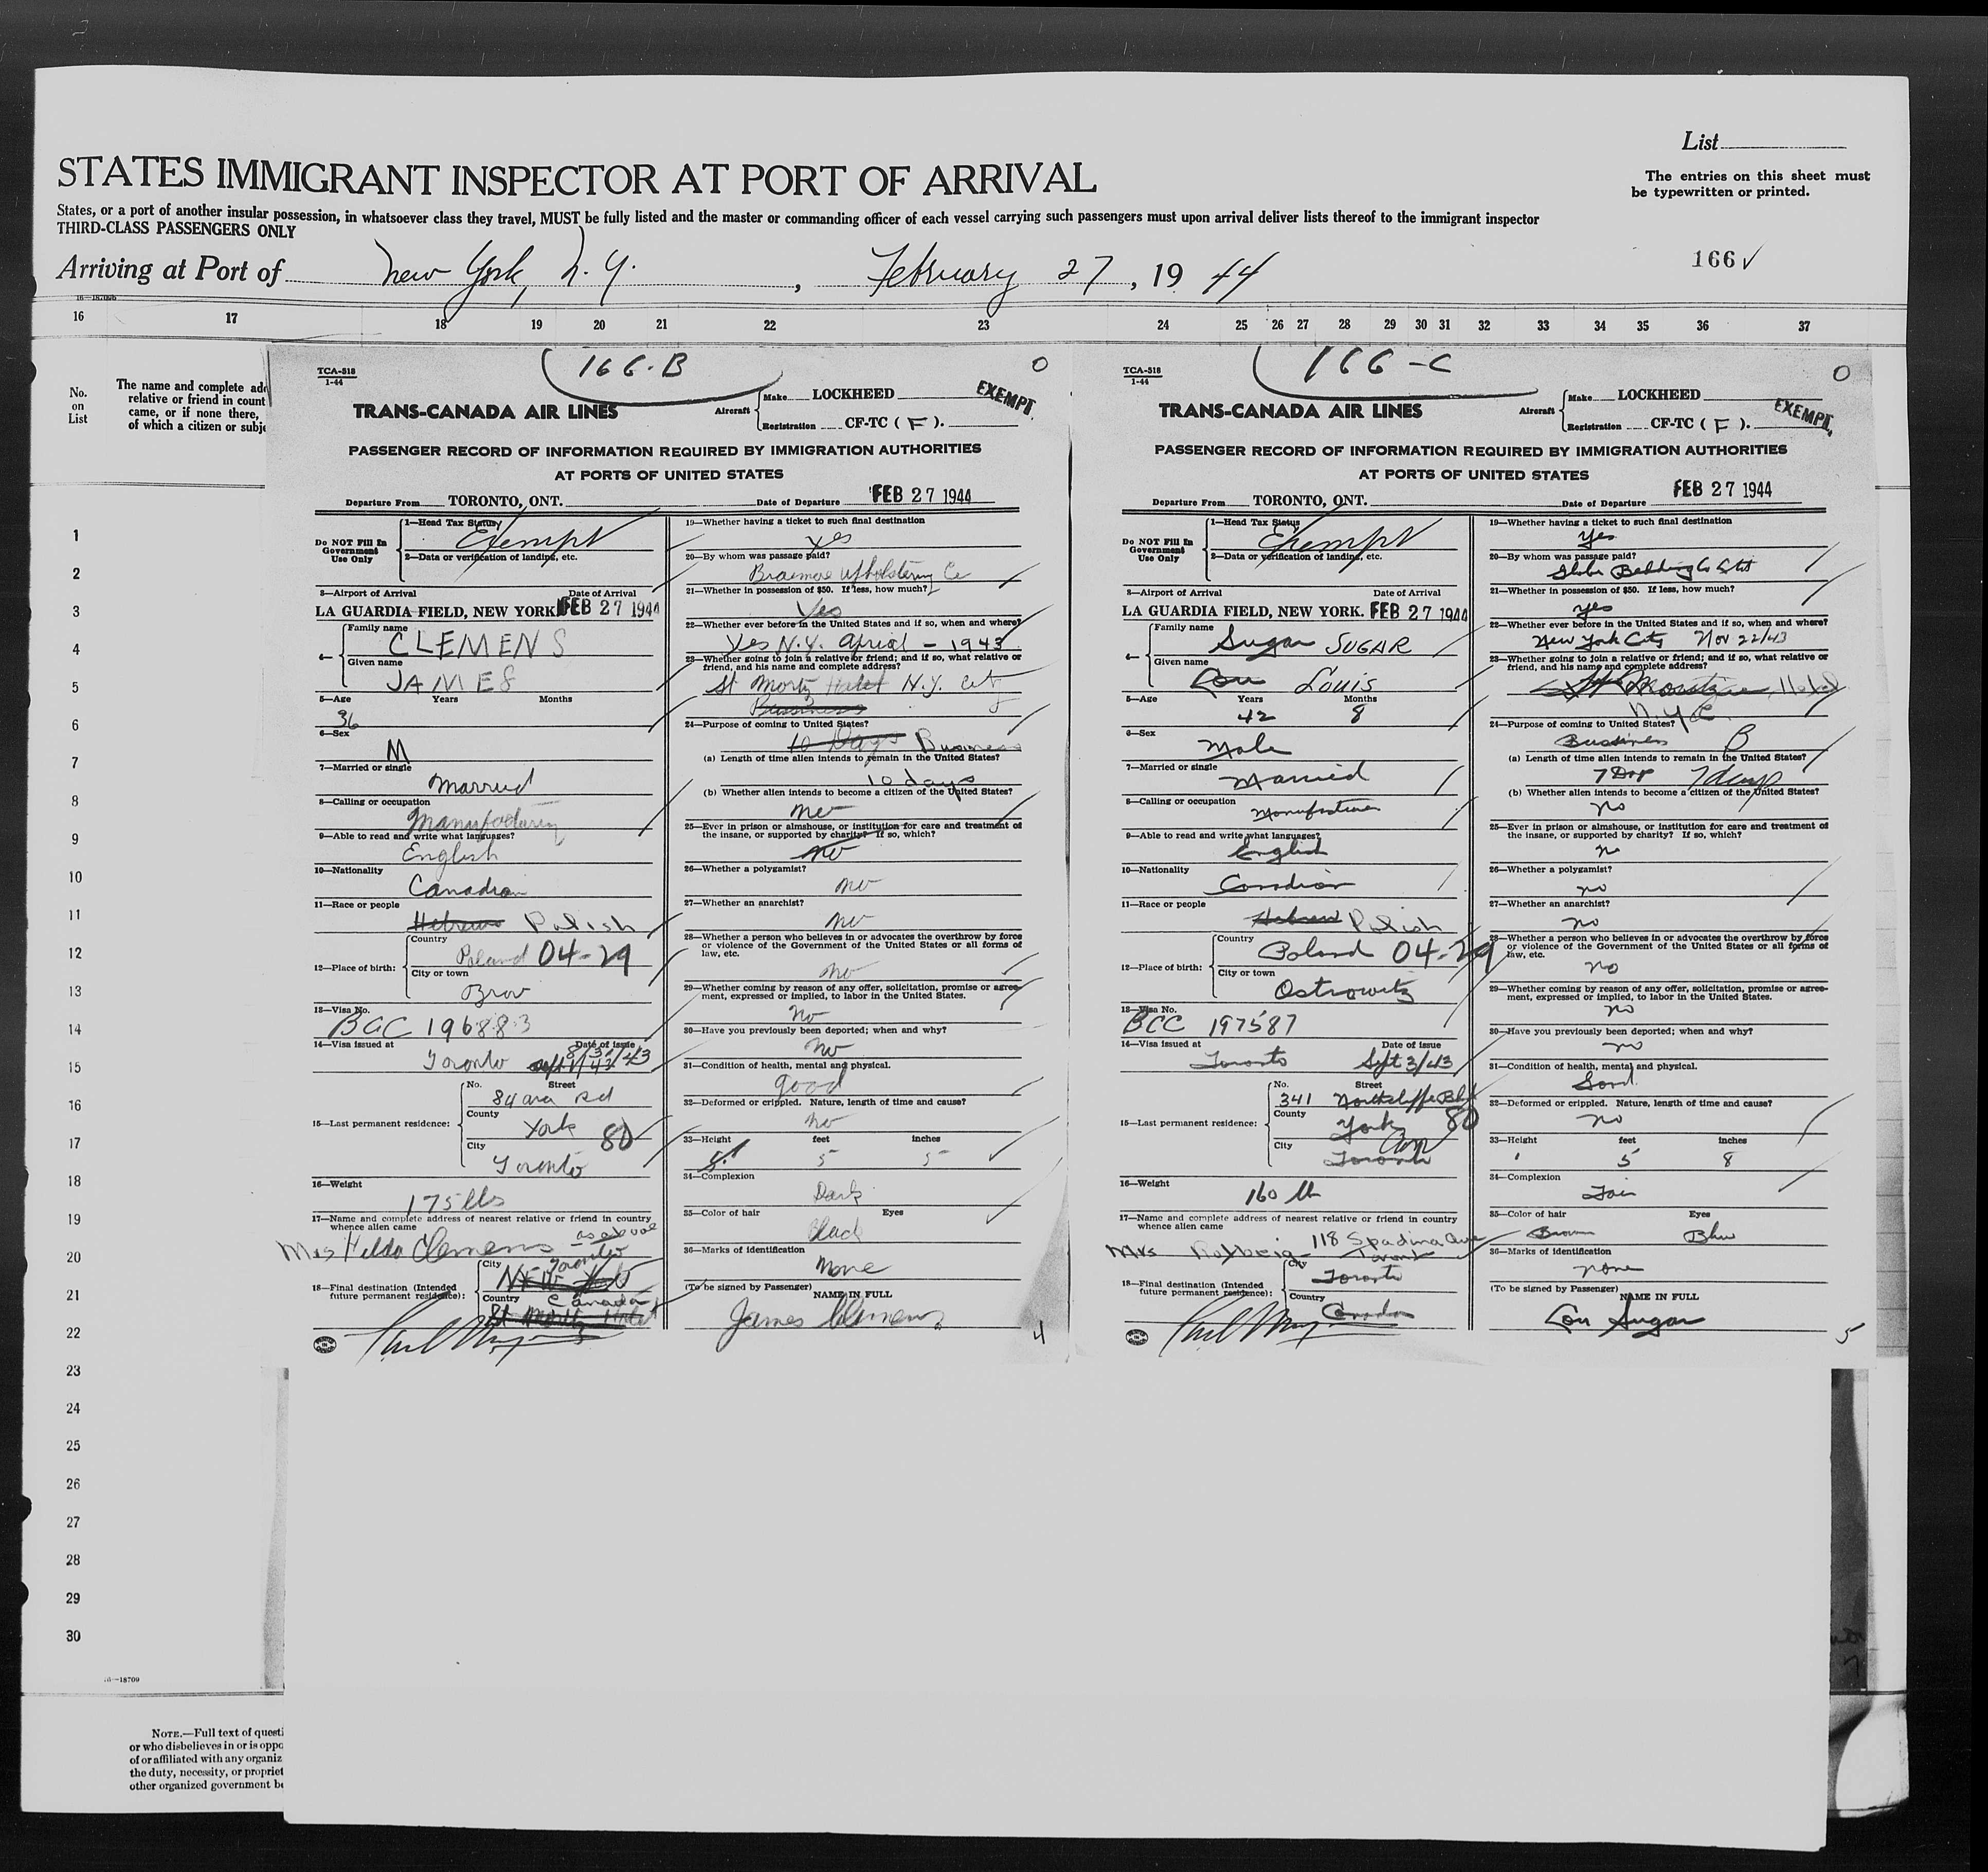 List
STATES IMMIGRANT INSPECTOR AT PORT OF ARRIVAL
The entries on this sheet must
be typewritten or printed.
States, or a port of another insular possession, in whatsoever class they travel, MUST be fully listed and the master or commanding officer of each vessel carrying such passengers must upon arrival deliver lists thereof to the immigrant inspector
THIRD-CLASS PASSENGERS ONLY
Arriving at Port of New York, N.Y. , February 27 , 19 44
166 ✓
16—18709b
16 17 18 19 20 21 22 23 24 25 26 27 28 29 30 31 32 33 34 35 36 37
No.
on
List
The name and complete add
relative or friend in count
came, or if none there,
of which a citizen or subje
1
2
3
4
5
6
7
8
9
10
11
12
13
14
15
16
17
18
19
20
21
22
23
24
25
26
27
28
29
30
16—18709
NOTE.—Full text of questi
or who disbelieves in or is oppo
of or affiliated with any organiz
the duty, necessity, or propriet
other organized government be
166-B
0
TCA-518
1-44
TRANS-CANADA AIR LINES
Aircraft
Make LOCKHEED
Registration CF-TC ( F ).
EXEMPT.
PASSENGER RECORD OF INFORMATION REQUIRED BY IMMIGRATION AUTHORITIES
AT PORTS OF UNITED STATES
Departure From TORONTO, ONT. Date of Departure FEB 27 1944
Do NOT Fill In
Government
Use Only
1—Head Tax Status
Exempt
2—Data or verification of landing, etc.
3—Airport of Arrival Date of Arrival
LA GUARDIA FIELD, NEW YORK. FEB 27 1944
4—
Family name
CLEMENS
Given name
JAMES
5—Age Years Months
36
6—Sex
M
7—Married or single
Married
8—Calling or occupation
Manufacturing
9—Able to read and write what languages?
English
10—Nationality
Canadian
11—Race or people
Hebrew Polish
12—Place of birth:
Country
Poland 04-29
City or town
Brov
13—Visa No.
BCC 196883
14—Visa issued at Date of issue
Toronto
15—Last permanent residence:
No. Street
84 ava Rd
County
York 80
City
Toronto
16—Weight
175 lbs
17—Name and complete address of nearest relative or friend in country
whence alien came
as above
Mrs Hilda Clemens Toronto
18—Final destination (Intended
future permanent residence):
City
New York
Country
Canada
St Moritz Hotel
19—Whether having a ticket to such final destination
Yes
20—By whom was passage paid?
Braemore Upholstering Co
21—Whether in possession of $50. If less, how much?
Yes
22—Whether ever before in the United States and if so, when and where?
Yes N.Y. Aprial - 1943
23—Whether going to join a relative or friend; and if so, what relative or
friend, and his name and complete address?
St Moritz Hotel N.Y. City
Bussiness
24—Purpose of coming to United States?
10 Days Business
(a) Length of time alien intends to remain in the United States?
10 days
(b) Whether alien intends to become a citizen of the United States?
no
25—Ever in prison or almshouse, or institution for care and treatment of
the insane, or supported by charity? If so, which?
no
26—Whether a polygamist?
no
27—Whether an anarchist?
no
28—Whether a person who believes in or advocates the overthrow by force
or violence of the Government of the United States or all forms of
law, etc.
no
29—Whether coming by reason of any offer, solicitation, promise or agree-
ment, expressed or implied, to labor in the United States.
no
30—Have you previously been deported; when and why?
no
31—Condition of health, mental and physical.
good
32—Deformed or crippled. Nature, length of time and cause?
no
33—Height feet inches
5 5
34—Complexion
Dark
35—Color of hair Eyes
Black
36—Marks of identification
None
(To be signed by Passenger)
NAME IN FULL
James Clemens
4
166-C
0
TCA-518
1-44
TRANS-CANADA AIR LINES
Aircraft
Make LOCKHEED
Registration CF-TC ( F ).
EXEMPT.
PASSENGER RECORD OF INFORMATION REQUIRED BY IMMIGRATION AUTHORITIES
AT PORTS OF UNITED STATES
Departure From TORONTO, ONT. Date of Departure FEB 27 1944
Do NOT Fill In
Government
Use Only
1—Head Tax Status
Exempt
2—Data or verification of landing, etc.
3—Airport of Arrival Date of Arrival
LA GUARDIA FIELD, NEW YORK. FEB 27 1944
4—
Family name
Sugar SUGAR
Given name
Lou Louis
5—Age Years Months
42 8
6—Sex
Male
7—Married or single
Married
8—Calling or occupation
Manufacturer
9—Able to read and write what languages?
English
10—Nationality
Canadian
11—Race or people
Hebrew Polish
12—Place of birth:
Country
Poland 04-29
City or town
Ostrowitz
13—Visa No.
BCC 197587
14—Visa issued at Date of issue
Toronto Sept 3/43
15—Last permanent residence:
No. Street
341 Northcliffe Blvd
County
York 80
City
Toronto
16—Weight
160 lb
17—Name and complete address of nearest relative or friend in country
whence alien came
118 Spadina Ave
Mrs Toronto
18—Final destination (Intended
future permanent residence):
City
Toronto
Country
Canada
19—Whether having a ticket to such final destination
Yes
20—By whom was passage paid?
Globe Bedding Co Ltd
21—Whether in possession of $50. If less, how much?
yes
22—Whether ever before in the United States and if so, when and where?
New York City Nov 22/43
23—Whether going to join a relative or friend; and if so, what relative or
friend, and his name and complete address?
St Moritz Hotel
N.Y.C.
24—Purpose of coming to United States?
Business B
(a) Length of time alien intends to remain in the United States?
7 Day 7 days
(b) Whether alien intends to become a citizen of the United States?
no
25—Ever in prison or almshouse, or institution for care and treatment of
the insane, or supported by charity? If so, which?
no
26—Whether a polygamist?
no
27—Whether an anarchist?
no
28—Whether a person who believes in or advocates the overthrow by force
or violence of the Government of the United States or all forms of
law, etc.
no
29—Whether coming by reason of any offer, solicitation, promise or agree-
ment, expressed or implied, to labor in the United States.
no
30—Have you previously been deported; when and why?
no
31—Condition of health, mental and physical.
Good
32—Deformed or crippled. Nature, length of time and cause?
no
33—Height feet inches
5 8
34—Complexion
Fair
35—Color of hair Eyes
Brown Blue
36—Marks of identification
none
(To be signed by Passenger)
NAME IN FULL
Lou Sugar
5